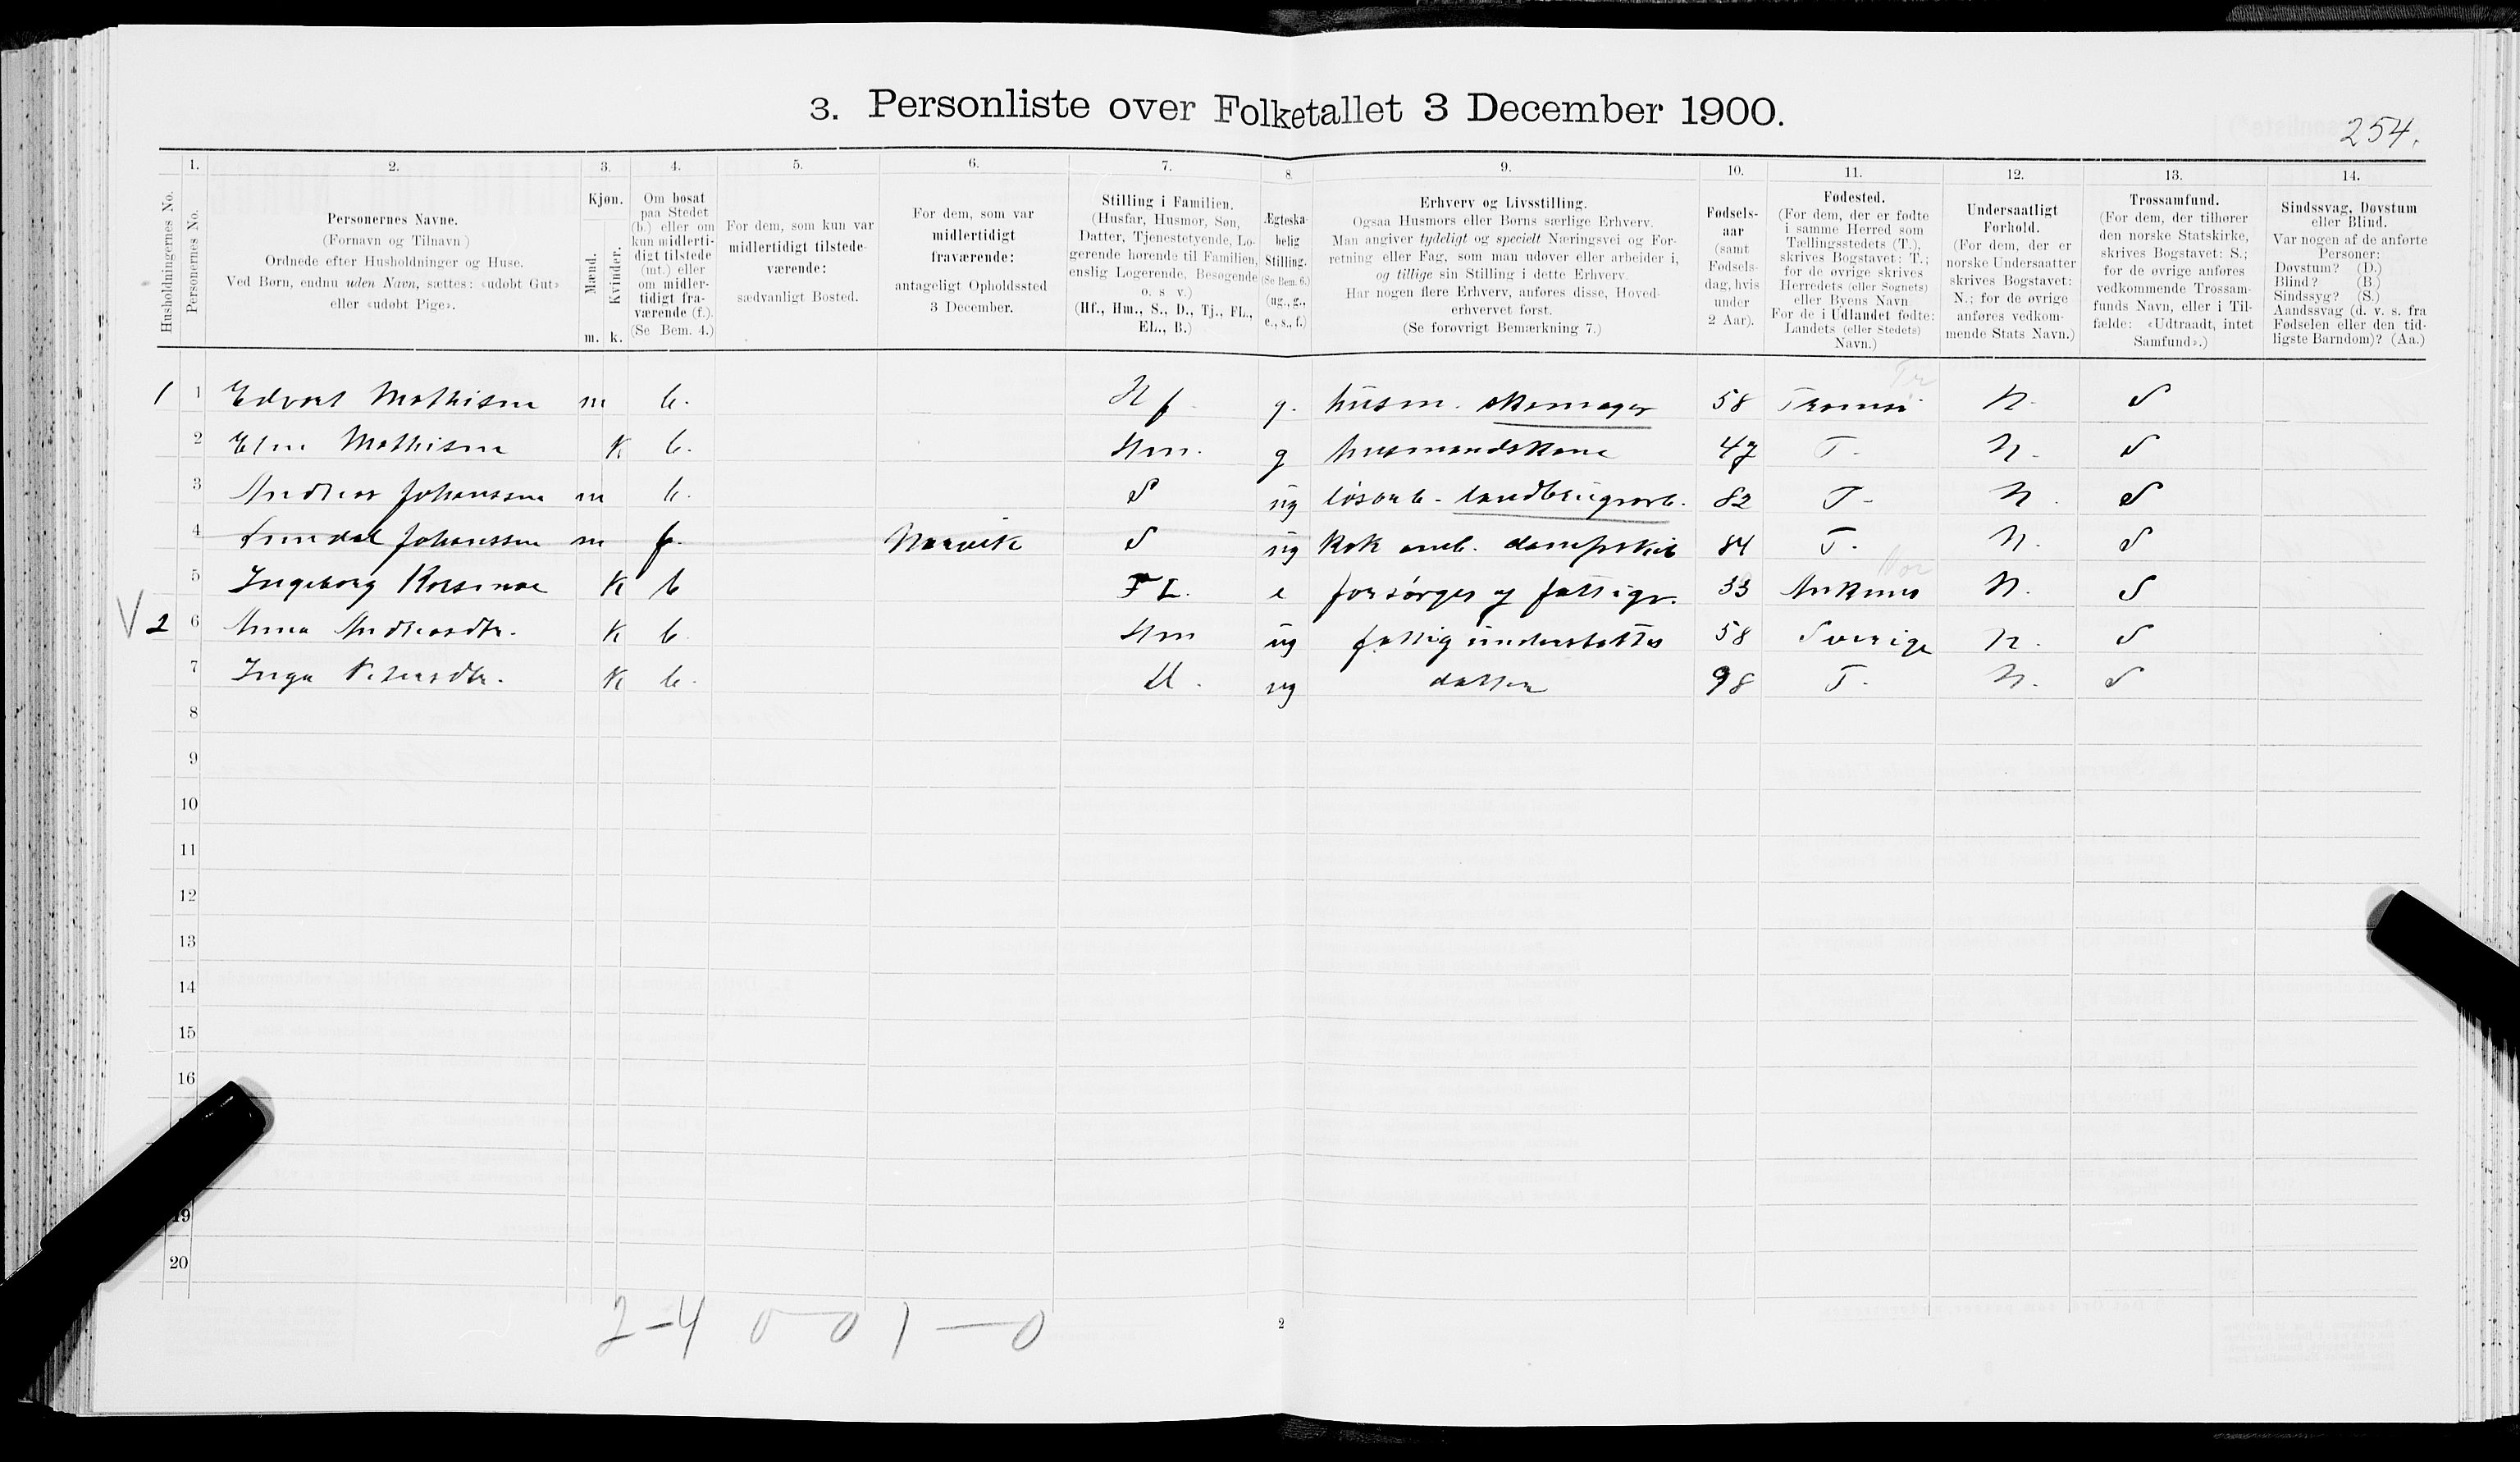 3. Personliste over Folketallet 3 December 1900.
254.
1. 2. 3. 4. 5. 6. 7. 8 9. 10. 11. 12. 13. 14.
Husholdningernes No.
Personernes No.
Personernes Navne.
(Fornavn og Tilnavn)
Ordnede efter Husholdninger og Huse.
Ved Børn, endnu uden Navn, sættes: «udøbt Gut»
eller «udøbt Pige».
Kjøn.
Mænd.
Kvinder.
m. k.
Om bosat
paa Stedet
(b.) eller om
kun midlerti-
digt tilstede
(mt.) eller
om midler-
tidigt fra-
værende (f.).
(Se Bem. 4.)
For dem, som kun var
midlertidigt tilstede-
værende:
sædvanligt Bosted.
For dem, som var
midlertidigt
fraværende:
antageligt Opholdssted
3 December.
Stilling i Familien.
(Husfar, Husmor, Søn,
Datter, Tjenestetyende, Lo-
gerende hørende til Familien,
enslig Logerende, Besøgende
o. s v.)
(Hf., Hm., S., D., Tj., FL.,
EL., B.)
Ægteska-
belig
Stilling.
(Se Bem. 6.)
(ug., g.,
e., s., f.)
Erhverv og Livsstilling.
Ogsaa Husmors eller Børns særlige Erhverv.
Man angiver tydeligt og specielt Næringsvei og For-
retning eller Fag, som man udøver eller arbeider i,
og tillige sin Stilling i dette Erhverv.
Har nogen flere Erhverv, anføres disse, Hoved-
erhvervet først.
(Se forøvrigt Bemærkning 7.)
Fødsels-
aar
(samt
Fødsels-
dag, hvis
under
2 Aar).
Fødested.
(For dem, der er fødte
i samme Herred som
Tællingsstedets (T.),
skrives Bogstavet: T.;
for de øvrige skrives
Herredets (eller Sognets)
eller Byens Navn
For de i Udlandet fødte:
Landets (eller Stedets)
Navn.)
Undersaatligt
Forhold.
(For dem, der er
norske Undersaatter
skrives Bogstavet:
N.; for de øvrige
anføres vedkom-
mende Stats Navn.)
Trossamfund.
(For dem, der tilhører
den norske Statskirke,
skrives Bogstavet: S.;
for de øvrige anføres
vedkommende Trossam-
funds Navn, eller i Til-
fælde: «Udtraadt, intet
Samfund».)
Sindssvag, Døvstum
eller Blind.
Var nogen af de anførte
Personer:
Døvstum? (D.)
Blind? (B.)
Sindssyg? (S.)
Aandssvag (d. v. s. fra
Fødselen eller den tid-
ligste Barndom)? (Aa.)
Tr
1 1 Edvart Mathisen m b. Hf g. husm. skomager 58 Tromsø N. S
2 Elen Mathisen K b. Hm. g husmandskone 47 T. N. S
3 Andreas Johanssen m b. S ug løsarb. landbrugsarb. 82 T. N. S
4 Johanssen m f. Narvik S ug kok omb. dampskib 84 T. N. S
5 Ingeborg K b FL. e forsørges af fattigv. 33 N. S
V 2 6 Anna Andreasdtr. K b. Hm ug fattigunderstøttes 58 Sverige N. S
7 Inga Petersdtr. K b. D. ug datter 98 T. N. S
8
9
10
11
12
13
14
15
16
19
20
2-4 0-0 1-0
2